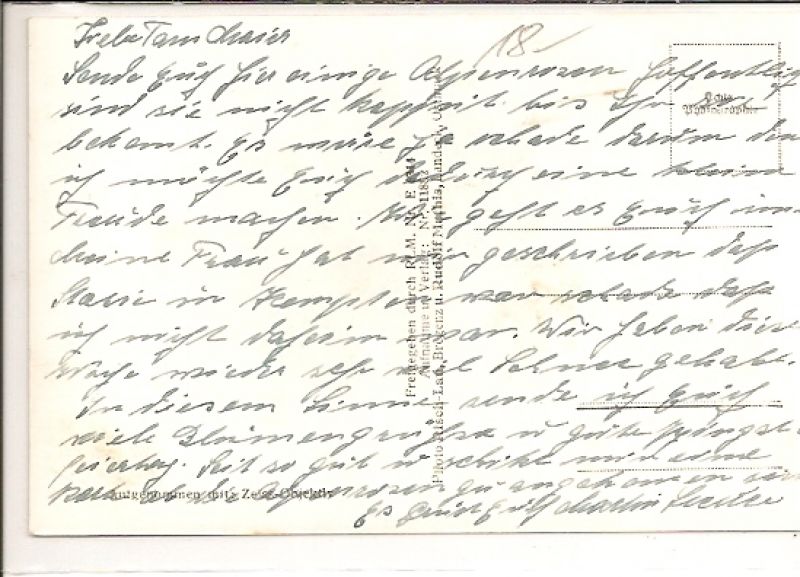 Liebe Fam Maier
18.-
Sende Euch hier einige Alpenrosen hoffentlich
sind sie nicht kapput bis Ihr sie
bekomt. Es wäre ja schade darum den
ich möchte Euch dadurch eine kleine
Freude machen. Wie geht es Euch im
Meine Frau hat mir geschrieben dass
in Kempten war schade dass
ich nicht daheim war. Wir haben diese
Woche wieder sehr viel Schnee gehabt.
In diesem Sinne sende ich Euch
viele Blumengrüsse u gute Pfingst-
feiertag. Seit so gut u schikt mir eine
ob die Alpenrosen angekomen sind
Es grüst Euch Martin
Echte
Photographie
Freigegeben durch RLM. Nr. E
Aufnahme u. Verlag: Nr. 1183
Photo Risch-Lau, Bregenz u. Rudolf Mathis, Landeck,
Aufgenommen mit Zeiss-Objektiv